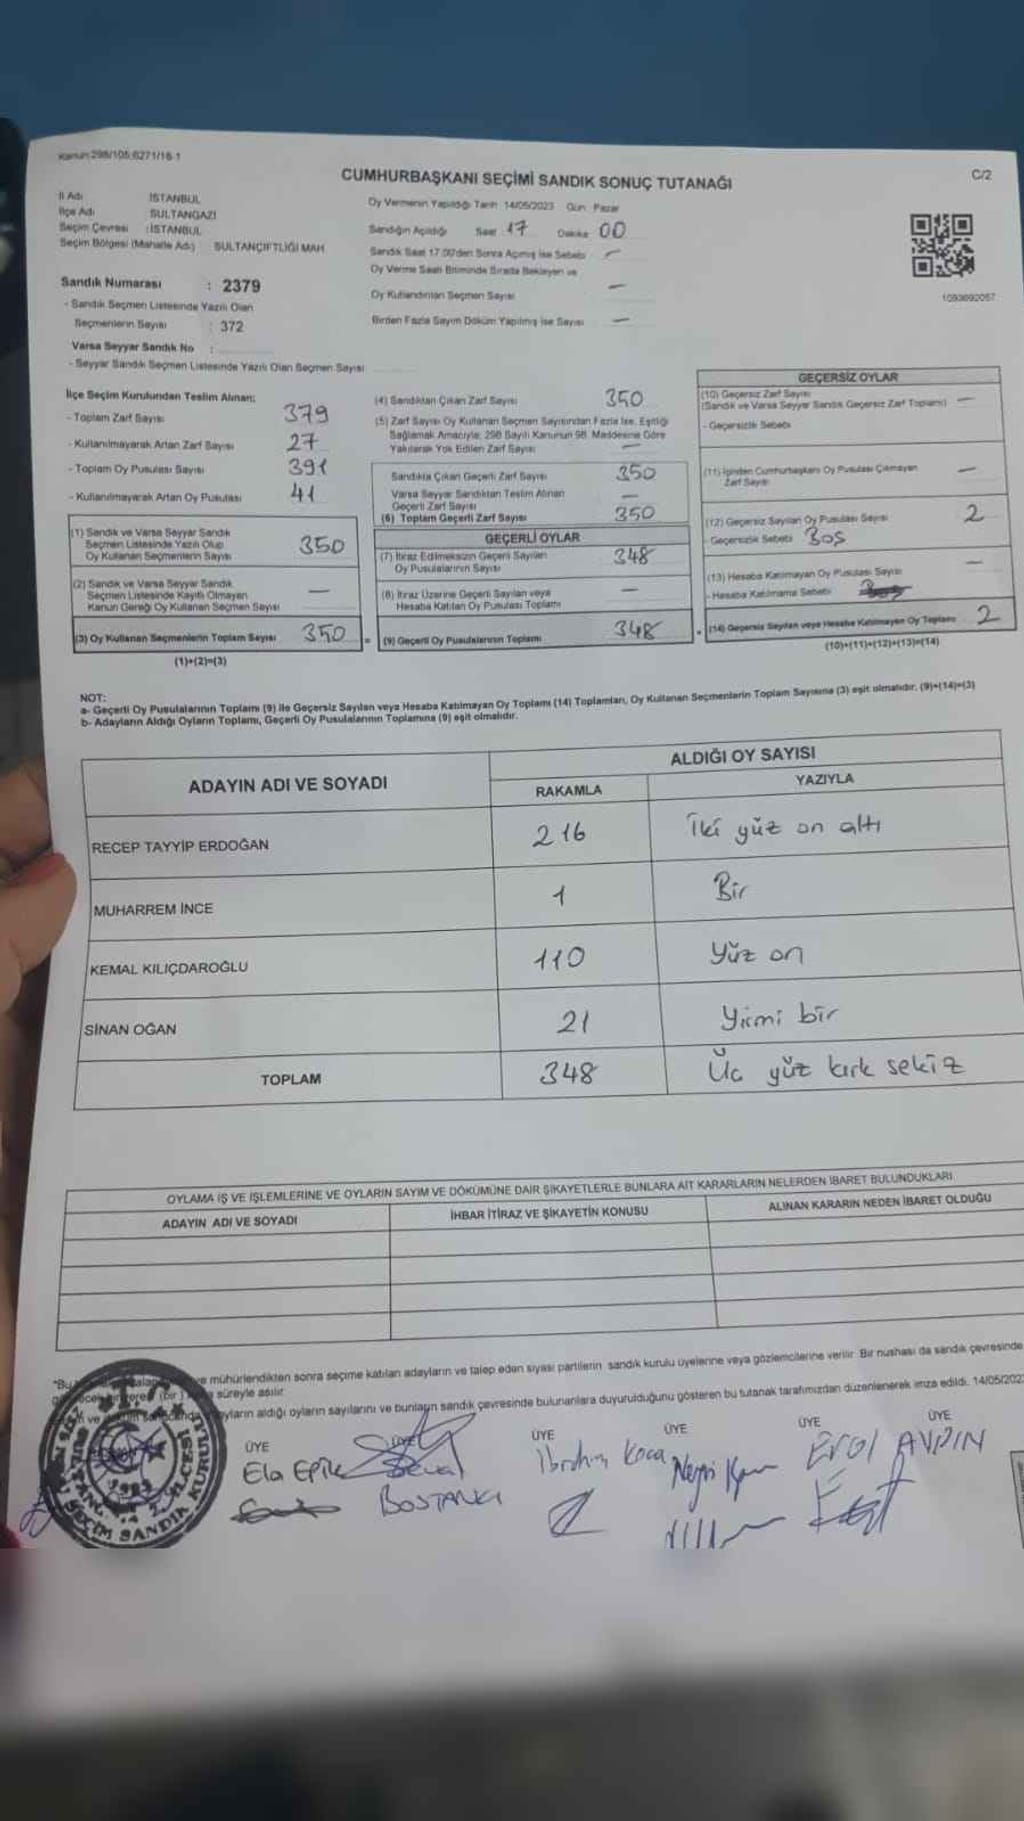 Kanun:298/105;6271/16-1
CUMHURBAŞKANI SEÇİMİ SANDIK SONUÇ TUTANAĞI
C/2
İl Adı İSTANBUL
İlçe Adı SULTANGAZİ
Seçim Çevresi :İSTANBUL
Seçim Bölgesi (Mahalle Adı) SULTANÇİFTLİĞİ MAH
Oy Vermenin Yapıldığı Tarih 14/05/2023 Gün: Pazar
Sandığın Açıldığı Saat 17 Dakika 00
Sandık Saat 17.00'den Sonra Açılmış İse Sebebi
Oy Verme Saati Bitiminde Sırada Bekleyen ve
Oy Kullandırılan Seçmen Sayısı —
Birden Fazla Sayım Döküm Yapılmış İse Sayısı —
1093692057
Sandık Numarası : 2379
- Sandık Seçmen Listesinde Yazılı Olan
Seçmenlerin Sayısı : 372
Varsa Seyyar Sandık No :
- Seyyar Sandık Seçmen Listesinde Yazılı Olan Seçmen Sayısı
İlçe Seçim Kurulundan Teslim Alınan;
- Toplam Zarf Sayısı 379
- Kullanılmayarak Artan Zarf Sayısı 27
- Toplam Oy Pusulası Sayısı 391
- Kullanılmayarak Artan Oy Pusulası 41
(1) Sandık ve Varsa Seyyar Sandık
Seçmen Listesinde Yazılı Olup
Oy Kullanan Seçmenlerin Sayısı 350
(2) Sandık ve Varsa Seyyar Sandık
Seçmen Listesinde Kayıtlı Olmayan
Kanun Gereği Oy Kullanan Seçmen Sayısı —
(3) Oy Kullanan Seçmenlerin Toplam Sayısı 350
(1)+(2)=(3)
(4) Sandıktan Çıkan Zarf Sayısı 350
(5) Zarf Sayısı Oy Kullanan Seçmen Sayısından Fazla İse, Eşitliği
Sağlamak Amacıyla; 298 Sayılı Kanunun 98. Maddesine Göre
Yakılarak Yok Edilen Zarf Sayısı —
Sandıkta Çıkan Geçerli Zarf Sayısı 350
Varsa Seyyar Sandıktan Teslim Alınan
Geçerli Zarf Sayısı —
(6) Toplam Geçerli Zarf Sayısı 350
GEÇERLİ OYLAR
(7) İtiraz Edilmeksizin Geçerli Sayılan
Oy Pusulalarının Sayısı 348
(8) İtiraz Üzerine Geçerli Sayılan veya
Hesaba Katılan Oy Pusulası Toplamı —
= (9) Geçerli Oy Pusulalarının Toplamı 348
GEÇERSİZ OYLAR
(10) Geçersiz Zarf Sayısı
(Sandık ve Varsa Seyyar Sandık Geçersiz Zarf Toplamı) —
- Geçersizlik Sebebi
(11) İçinden Cumhurbaşkanı Oy Pusulası Çıkmayan
Zarf Sayısı —
(12) Geçersiz Sayılan Oy Pusulası Sayısı 2
- Geçersizlik Sebebi Boş
(13) Hesaba Katılmayan Oy Pusulası Sayısı —
- Hesaba Katılmama Sebebi
+ (14) Geçersiz Sayılan veya Hesaba Katılmayan Oy Toplamı 2
(10)+(11)+(12)+(13)=(14)
NOT:
a- Geçerli Oy Pusulalarının Toplamı (9) ile Geçersiz Sayılan veya Hesaba Katılmayan Oy Toplamı (14) Toplamları, Oy Kullanan Seçmenlerin Toplam Sayısına (3) eşit olmalıdır. (9)+(14)=(3)
b- Adayların Aldığı Oyların Toplamı, Geçerli Oy Pusulalarının Toplamına (9) eşit olmalıdır.
ADAYIN ADI VE SOYADI
ALDIĞI OY SAYISI
RAKAMLA YAZIYLA
RECEP TAYYİP ERDOĞAN 216 İki yüz on altı
MUHARREM İNCE 1 Bir
KEMAL KILIÇDAROĞLU 110 Yüz on
SİNAN OĞAN 21 Yirmi bir
TOPLAM 348 Üc yüz kırk sekiz
OYLAMA İŞ VE İŞLEMLERİNE VE OYLARIN SAYIM VE DÖKÜMÜNE DAİR ŞİKAYETLERLE BUNLARA AİT KARARLARIN NELERDEN İBARET BULUNDUKLARI
ADAYIN ADI VE SOYADI İHBAR İTİRAZ VE ŞİKAYETİN KONUSU ALINAN KARARIN NEDEN İBARET OLDUĞU
mühürlendikten sonra seçime katılan adayların ve talep eden siyasi partilerin sandık kurulu üyelerine veya gözlemcilerine verilir. Bir nushası da sandık çevresinde
süreyle asılır.
oyların aldığı oyların sayılarını ve bunların sandık çevresinde bulunanlara duyurulduğunu gösteren bu tutanak tarafımızdan düzenlenerek imza edildi. 14/05/2023
ÜYE ÜYE ÜYE ÜYE ÜYE
Ela İbrahim Koca Erol AYDIN
BOSTANCI
SEÇİM SANDIK KURULU